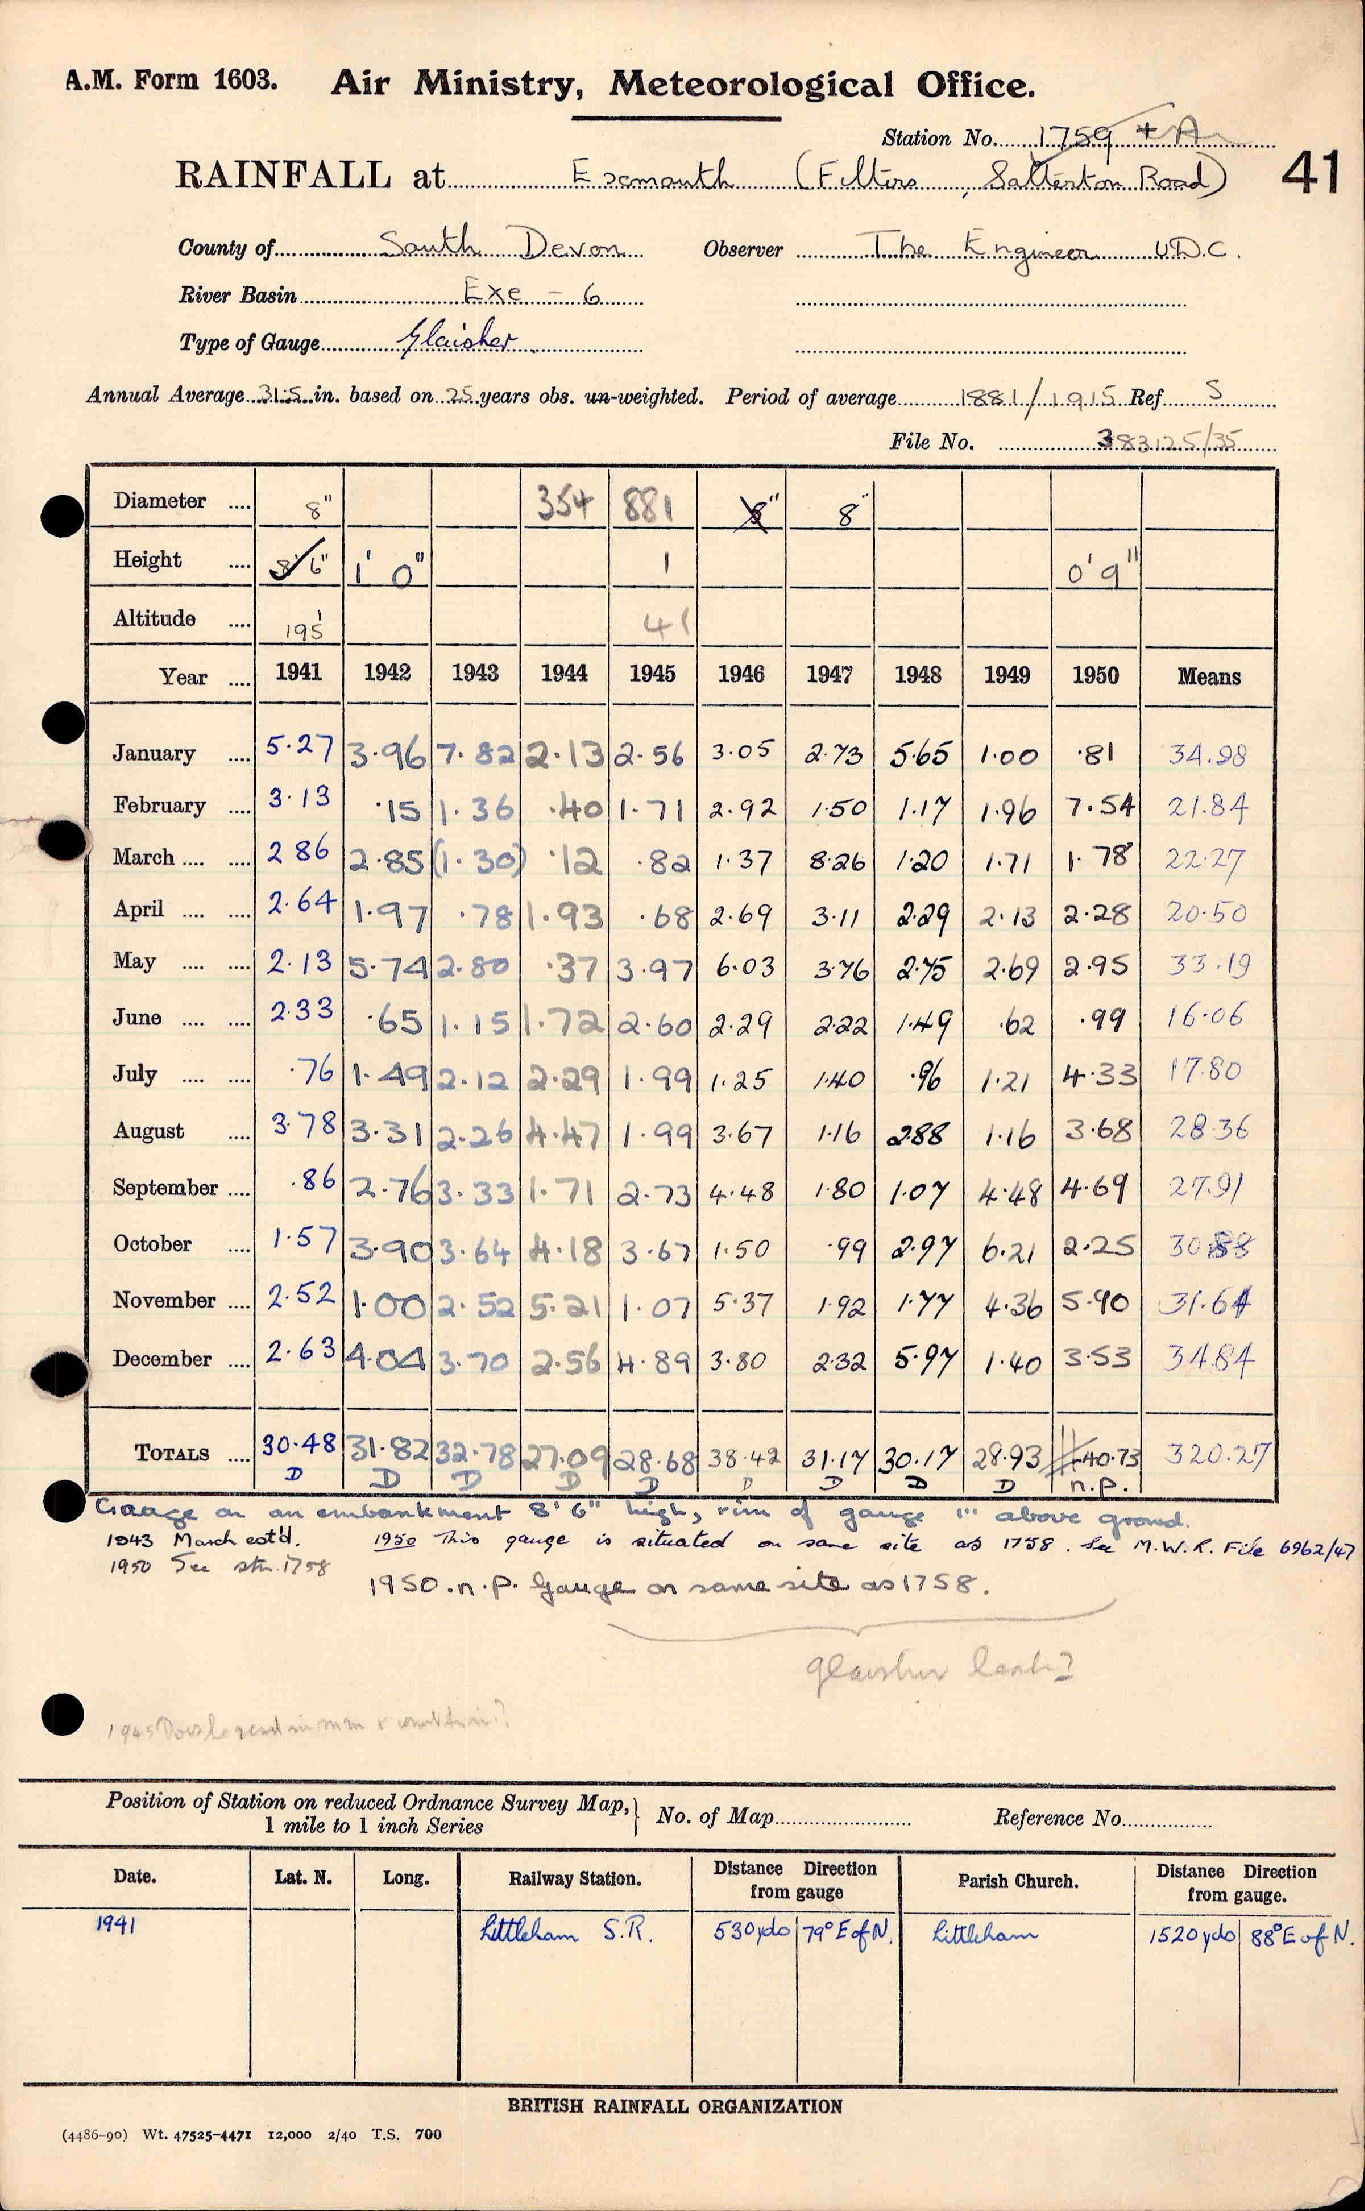 A.M. Form 1603. Air Ministry, Meteorological Office.
Station No. 1759 + A
RAINFALL at Exmouth (Filters, Salterton Road) 41
County of South Devon Observer The Engineer U.D.C.
River Basin Exe - 6
Type of Gauge Glaisher
Annual Average 31.5 in. based on 25 years obs. un-weighted. Period of average 1881/1915 Ref S
File No. 383125/35
Diameter .... 8" 354 881 8" 8"
Height .... 8'6" 1' 0" 1 0'9"
Altitude .... 195' 41
Year .... 1941 1942 1943 1944 1945 1946 1947 1948 1949 1950 Means
January .... 5.27 3.96 7.82 2.13 2.56 3.05 2.73 5.65 1.00 .81 34.98
February .... 3.13 .15 1.36 .40 1.71 2.92 1.50 1.17 1.96 7.54 21.84
March .... .... 2 86 2.85 (1.30) .12 .82 1.37 8.26 1.20 1.71 1.78 22.27
April .... .... 2.64 1.97 .78 1.93 .68 2.69 3.11 2.29 2.13 2.28 20.50
May .... .... 2.13 5.74 2.80 .37 3.97 6.03 3.76 2.75 2.69 2.95 33.19
June .... .... 2.33 .65 1.15 1.72 2.60 2.29 2.22 1.49 .62 .99 16.06
July .... .... .76 1.49 2.12 2.29 1.99 1.25 1.40 .96 1.21 4.33 17.80
August .... 3.78 3.31 2.26 4.47 1.99 3.67 1.16 2.88 1.16 3.68 28.36
September .... .86 2.76 3.33 1.71 2.73 4.48 1.80 1.07 4.48 4.69 27.91
October .... 1.57 3.90 3.64 4.18 3.67 1.50 .99 2.97 6.21 2.25 30.88
November .... 2.52 1.00 2.52 5.21 1.07 5.37 1.92 1.77 4.36 5.90 31.64
December .... 2.63 4.04 3.70 2.56 4.89 3.80 2.32 5.97 1.40 3.53 34.84
TOTALS .... 30.48 31.82 32.78 27.09 28.68 38.42 31.17 30.17 28.93 40.73 320.27
D D D D D D D D D n.p.
Gauge on an embankment 8' 6" high, rim of gauge 1" above ground.
1943 March est'd. 1950 This gauge is situated on same site as 1758. See M.W.R. File 6962/47
1950 See stn. 1758
1950. n.p. Gauge on same site as 1758.
Glaisher leak?
1945
Position of Station on reduced Ordnance Survey Map, 1 mile to 1 inch Series } No. of Map Reference No.
Date. Lat. N. Long. Railway Station. Distance Direction from gauge Parish Church. Distance Direction from gauge.
1941 Littleham S.R. 530 yds 79° E of N. Littleham 1520 yds 88° E of N.
BRITISH RAINFALL ORGANIZATION
(4486-90) Wt. 47525-4471 12,000 2/40 T.S. 700